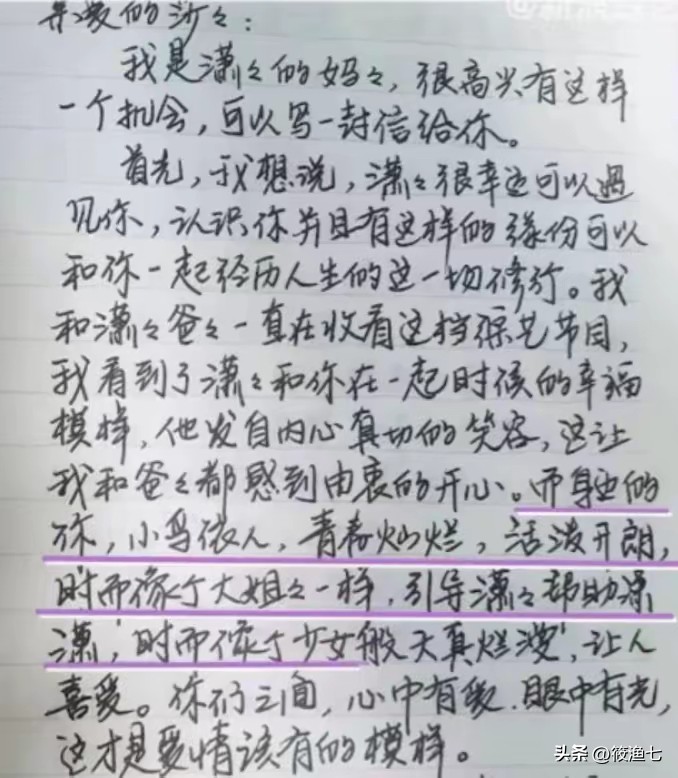 亲爱的沙々：
我是潇々的妈々，很高兴有这样
一个机会，可以写一封信给你。
首先，我想说，潇々很幸运可以遇
见你，认识你并且有这样的缘份可以
和你一起经历人生的这一切修行。我
和潇々爸々一直在收看这档综艺节目，
我看到了潇々和你在一起时候的幸福
模样，他发自内心真切的笑容，这让
我和爸々都感到由衷的开心。而身边的
你，小鸟依人，青春灿烂，活泼开朗，
时而像个大姐々一样，引导潇々帮助潇
潇，时而像个少女般天真烂漫，让人
喜爱。你们之间，心中有爱，眼中有光，
这才是爱情该有的模样。
头条 @筱渔七